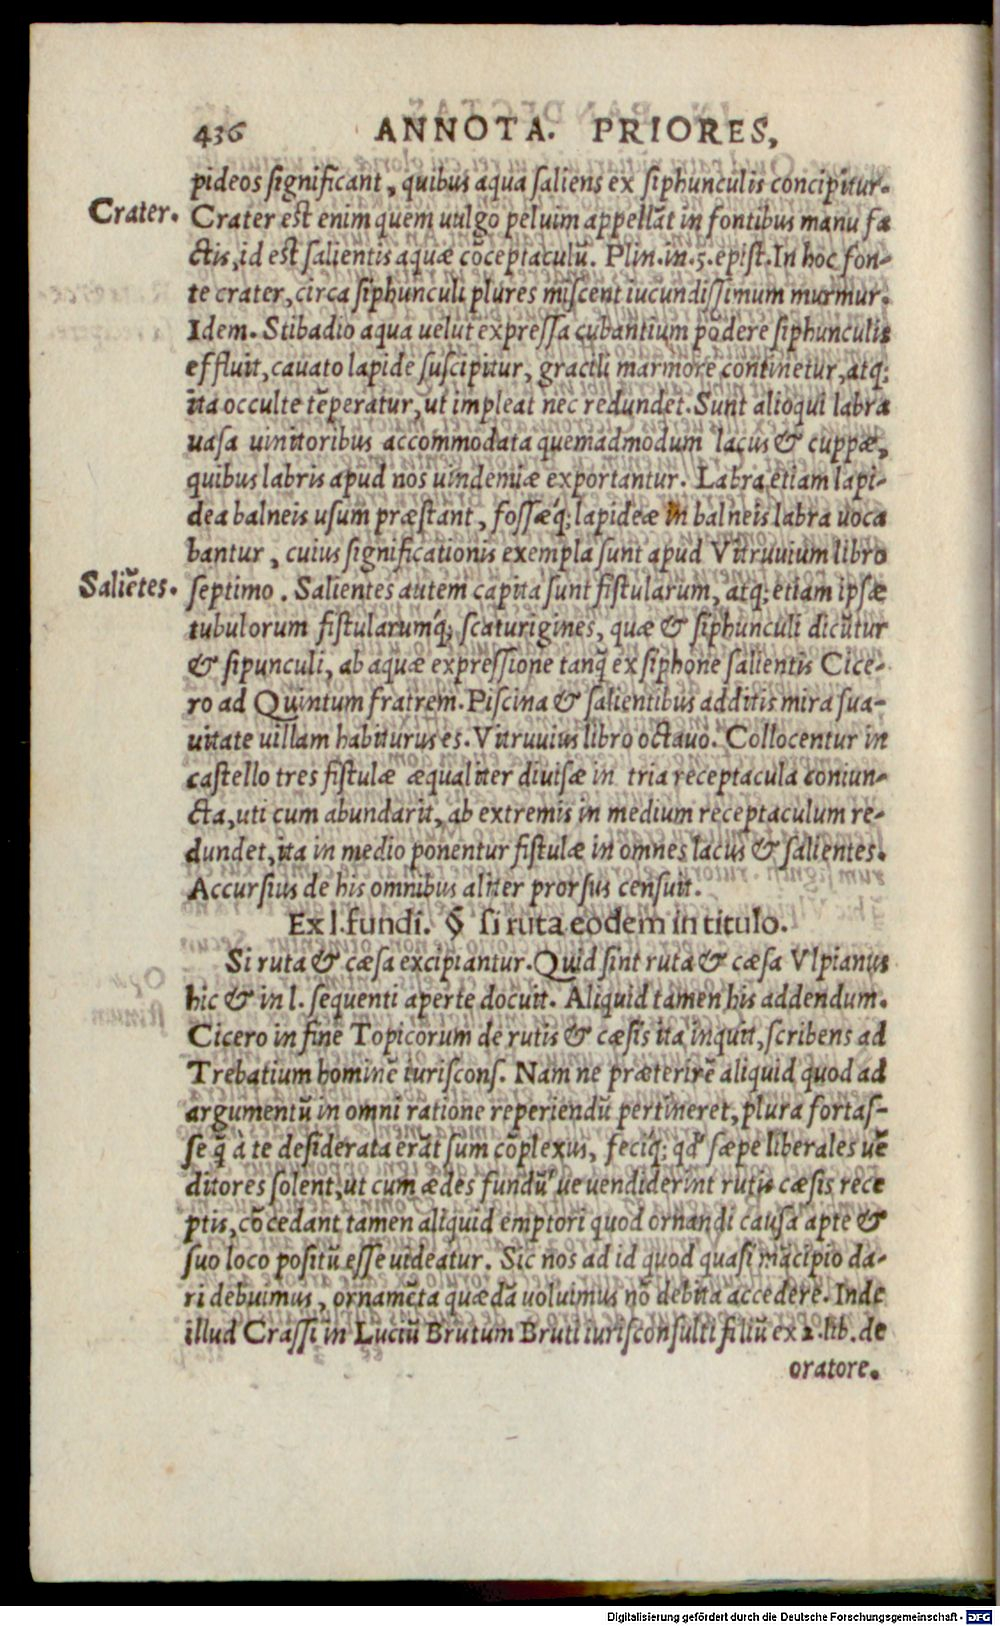 436 ANNOTA. PRIORES,
pideos significant, quibus aqua saliens ex siphunculis concipitur.
Crater.
Crater est enim quem uulgo peluim appellāt in fontibus manu fa
ctis, id est salientis aquæ cōceptaculū. Plin. in. 5. epist. In hoc fon-
te crater, circa siphunculi plures miscent iucundissimum murmur.
Idem. Stibadio aqua uelut expressa cubantium pōdere siphunculis
effluit, cauato lapide suscipitur, gracili marmore continetur, atq;
ita occulte tēperatur, ut impleat nec redundet. Sunt alioqui labra
uasa uinitoribus accommodata quemadmodum lacus & cuppæ,
quibus labris apud nos uindemiæ exportantur. Labra etiam lapi-
dea balneis usum præstant, fossæq́; lapideæ in balneis labra uoca
bantur, cuius significationis exempla sunt apud Vitruuium libro
Saliētes.
septimo. Salientes autem capita sunt fistularum, atq; etiam ipsæ
tubulorum fistularumq́; scaturigines, quæ & siphunculi dicūtur
& sipunculi, ab aquæ expressione tanq̄ ex siphone salientis Cice-
ro ad Quintum fratrem. Piscina & salientibus additis mira sua-
uitate uillam habiturus es. Vitruuius libro octauo. Collocentur in
castello tres fistulæ æqualiter diuisæ in tria receptacula coniun-
cta, uti cum abundarit, ab extremis in medium receptaculum re-
dundet, ita in medio ponentur fistulæ in omnes lacus & salientes.
Accursius de his omnibus aliter prorsus censuit.
Ex l. fundi. § si ruta eodem in titulo.
Si ruta & cæsa excipiantur. Quid sint ruta & cæsa Vlpianus
hic & in l. sequenti aperte docuit. Aliquid tamen his addendum.
Cicero in fine Topicorum de rutis & cæsis ita inquit, scribens ad
Trebatium hominē iuriscons. Nam ne præterirē aliquid quod ad
argumentū in omni ratione reperiendū pertineret, plura fortas-
se q̄ à te desiderata erāt sum cōplexus, feciq́; qd' sæpe liberales uē
ditores solent, ut cum ædes fundū' ue uendiderint rutis cæsis rece
ptis, cōcedant tamen aliquid emptori quod ornandi causa apte &
suo loco positū esse uideatur. Sic nos ad id quod quasi mācipio da-
ri debuimus, ornamēta quædā uoluimus nō debita accedere. Inde
illud Crassi in Luciū Brutum Bruti iurisconsulti filiū ex 2. lib. de
oratore.
Digitalisierung gefördert durch die Deutsche Forschungsgemeinschaft - DFG